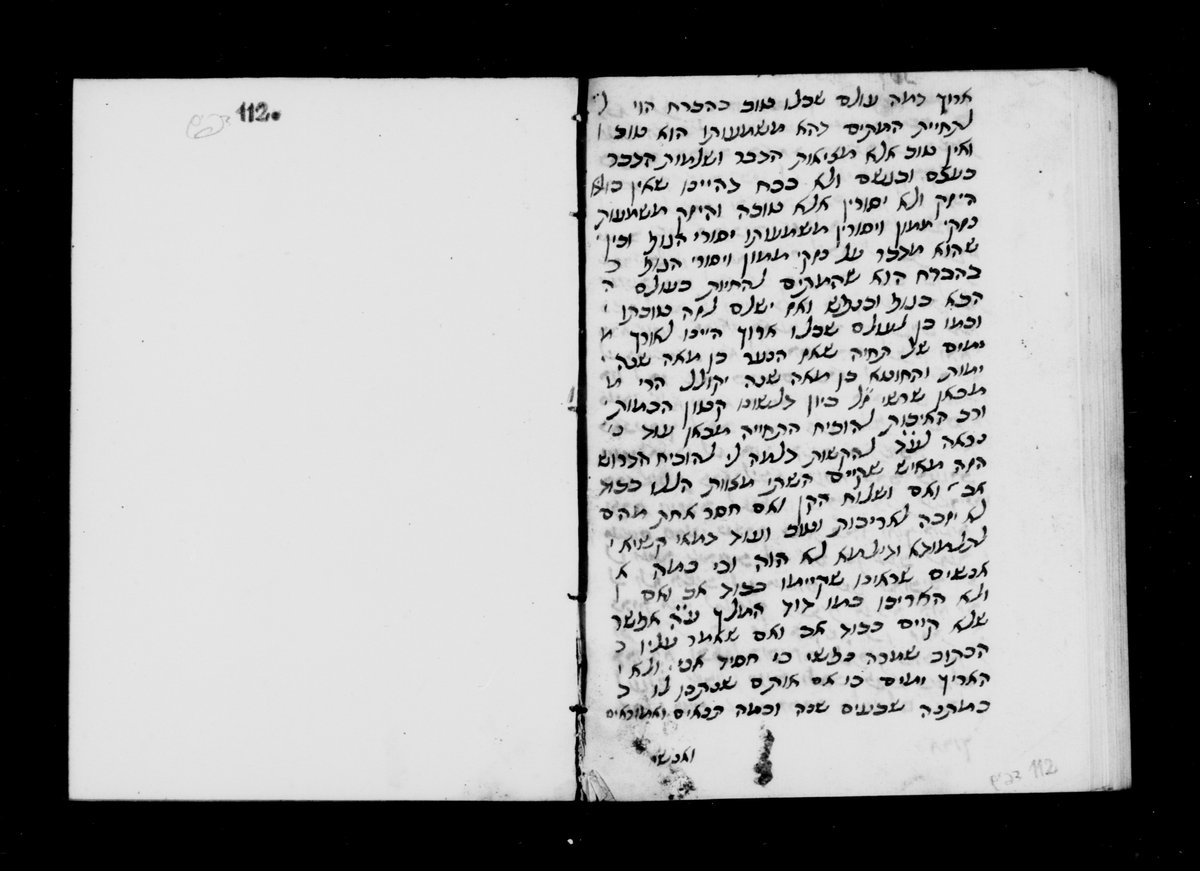 112.
ארוך כמה עולם שכלו טוב בהכרח הוי
לתחיית המתים דהא משמעותו הוא טוב
ואין טוב אלא מציאות הדבר ושלמות הדבר
בעצם ובגשם ולא בכח דהיינו שאין בו
היזק ולא יסורין אלא טובה והיזק משמעות
נזקי ממון ויסורין משמעותו יסורי הגוף וכיון
שהוא מדבר על נזקי ממון ויסורי הגוף
בהכרח הוא שהמתים להחיות בעולם
הבא בגוף ובנפש ואז ישלם לזה טובתו
וכמו כן לעולם שכלו ארוך היינו לאורך
ימים של תחיה שאז הנער בן מאה שנה
ימות והחוטא בן מאה שנה יקולל הרי
מכאן שרשי ז״ל כיון בלשונו קטון הכמות
ורב האיכות להוכיח התחייה מכאן עוד
נראה לע״ד להקשות דלמה לי להוכיח הדרוש
הזה מאיש שקיים השתי מצוות הללו כבוד
אב ואם ושלוח הקן ואם חסר אחת מהם
לא יזכה לאריכות וטוב ועוד במאי קשיא
לתלמודא ודילמא לא הוה וכי כמה
אנשים שראינו שקיימו כבוד אב ואם
ולא האריכו כמו דוד המלך ע״ה אפשר
שלא קיים כבוד אב ואם שאמר עליו
הכתוב שמרה נפשי כי חסיד אני ולא
האריך ימים כי אם אותם שנתנו לו
במתנה שבעים שנה וכמה תנאים ואמוראים
ואנשי
112